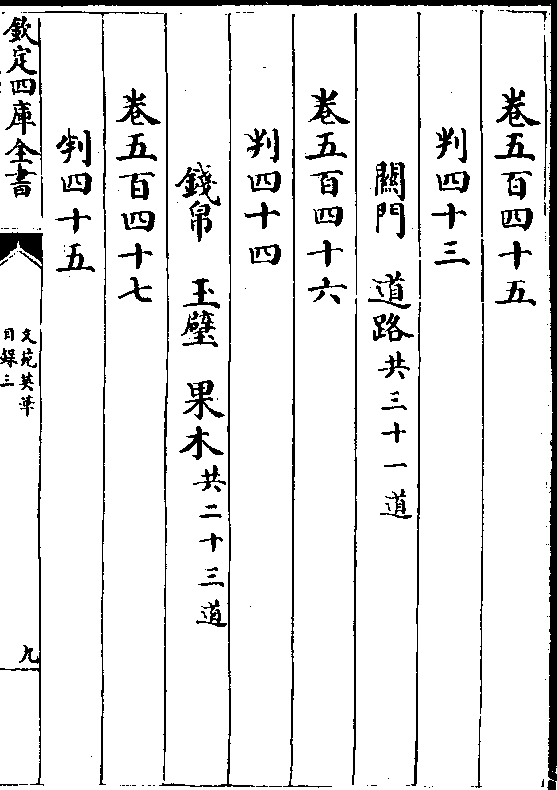 卷五百四十五
判四十三
關門　道路共三十一道
卷五百四十六
判四十四
錢帛　玉璧　果木共二十三道
卷五百四十七
判四十五
欽定四庫全書
文苑英華
目錄三
九